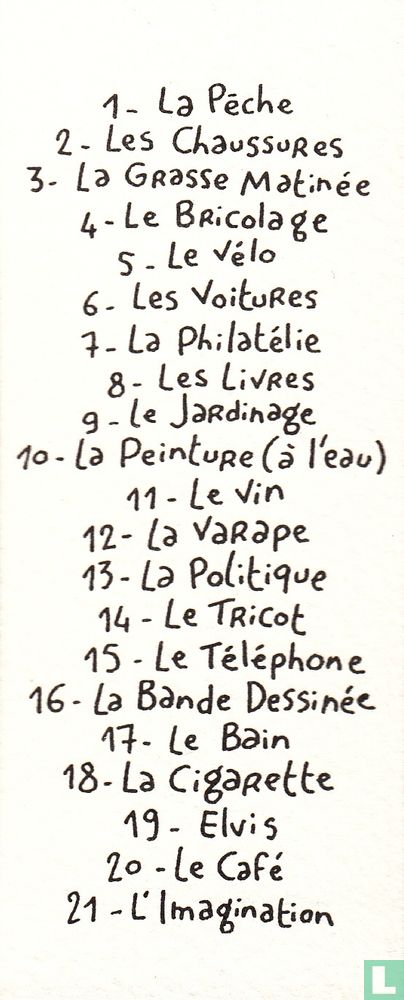 1- La Pêche
2- Les Chaussures
3- La Grasse Matinée
4- Le Bricolage
5- Le Vélo
6- Les Voitures
7- La Philatélie
8- Les Livres
9- Le Jardinage
10- La Peinture (à l'eau)
11- Le Vin
12- La Varape
13- La Politique
14- Le Tricot
15- Le Téléphone
16- La Bande Dessinée
17- Le Bain
18- La Cigarette
19- Elvis
20- Le Café
21- L'Imagination
L